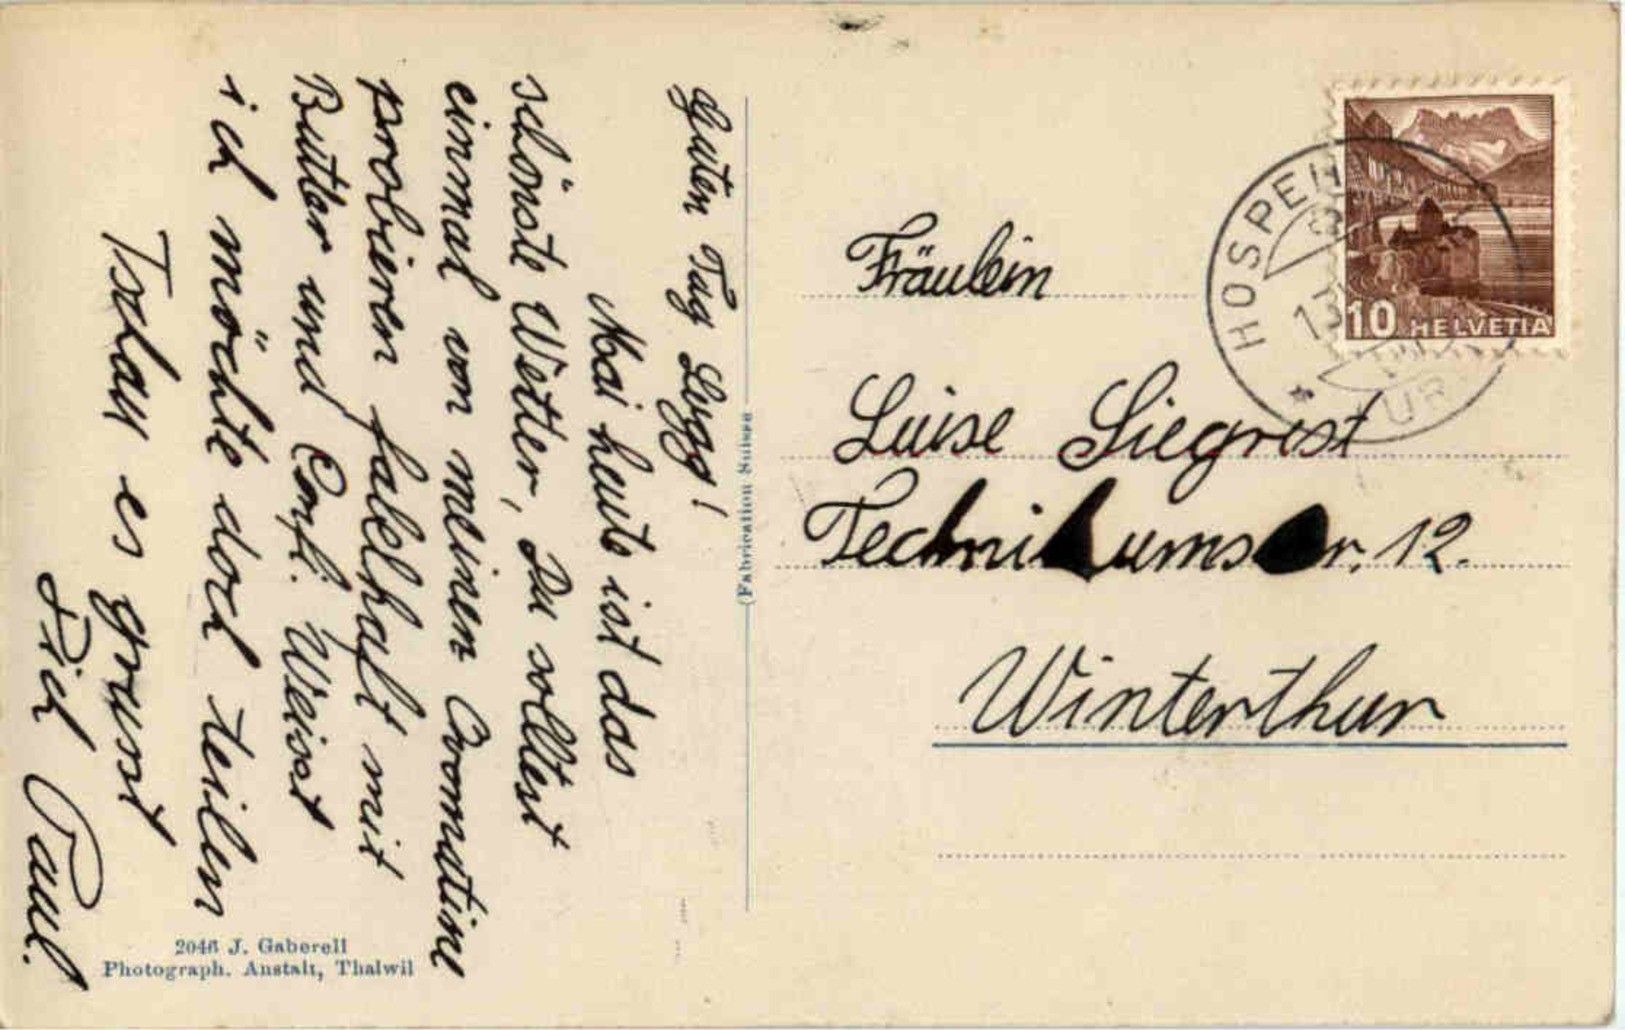 Guten Tag Legg!
Mai heute ist das
schönste Wetter, Du solltest
einmal von meinen Ovomaltine
probieren fabelhaft mit
Butter und Conf. Weisst
ich möchte doch teilen
Tschau es grüsst
Dich Paul.
2046 J. Gaberell
Photograph. Anstalt, Thalwil
(Fabrication Suisse
Fräulein
Luise Siegrist
Technikumstr. 12.
Winterthur
HOSPEN
10 HELVETIA